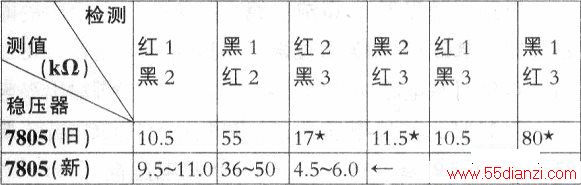 检测
测值
(kΩ)
稳压器
红 1 黑 1 红 2 黑 2 红 1 黑 1
黑 2 红 2 黑 3 红 3 黑 3 红 3
7805(旧) 10.5 55 17★ 11.5★ 10.5 80★
7805(新) 9.5~11.0 36~50 4.5~6.0 ←
www.55dianzi.com